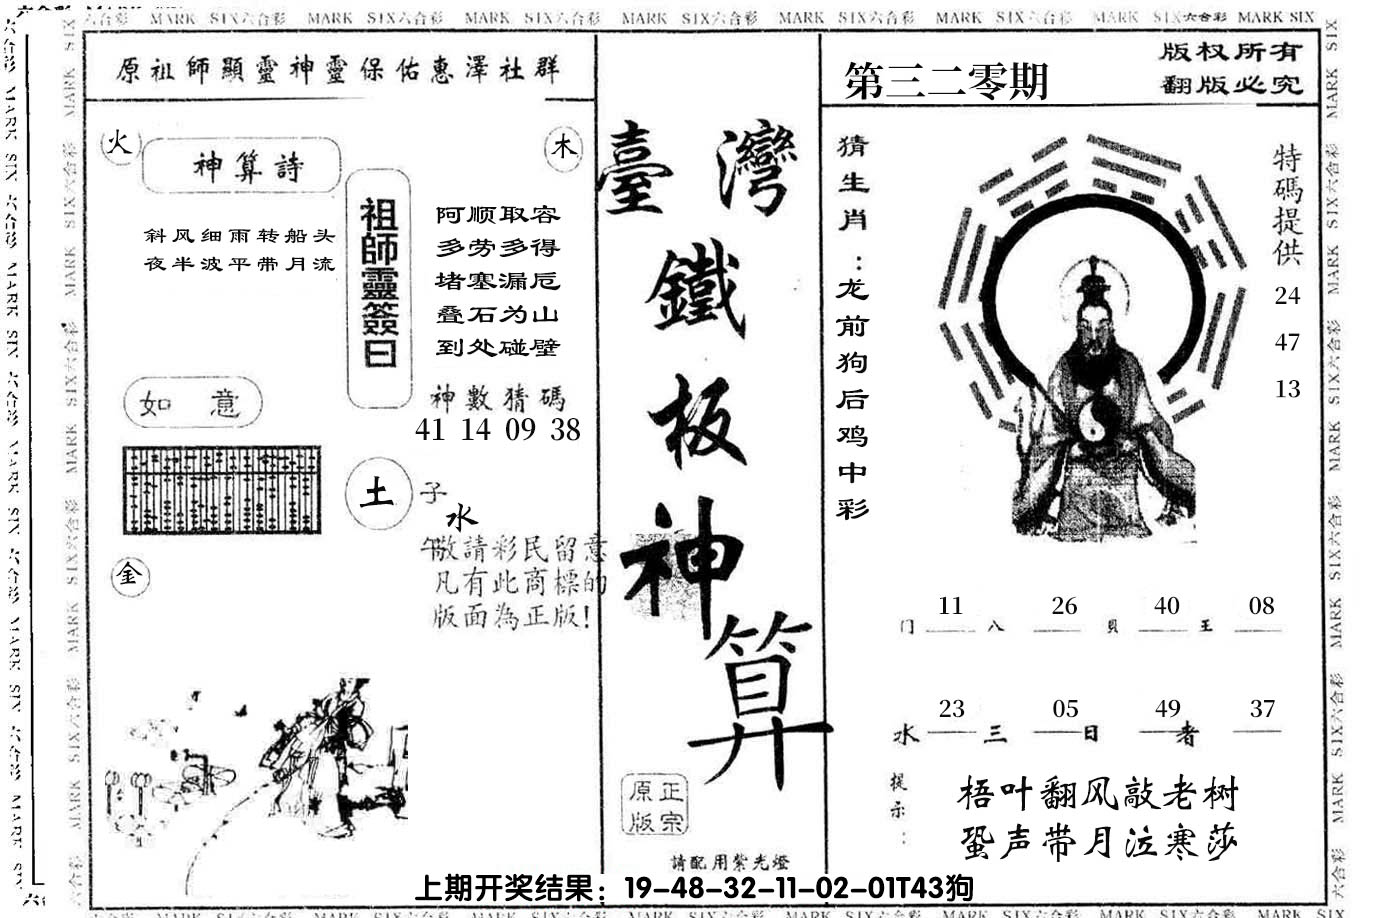 MARK SIX六合彩 MARK SIX六合彩 MARK SIX六合彩 MARK SIX六合彩 MARK SIX六合彩 MARK SIX六合彩 MARK SIX六合彩 MARK SIX
原祖師顯靈神靈保佑惠澤社群
火
神算詩
木
斜风细雨转船头
夜半波平带月流
祖師靈簽曰
阿顺取容
多劳多得
堵塞漏卮
叠石为山
到处碰壁
神數猜碼
41 14 09 38
如意
土
子
水
午
敬請彩民留意
凡有此商標的
版面為正版!
金
臺灣
鐵
板
神
算
正宗
原版
請配用紫光燈
第三二零期
版权所有
翻版必究
猜生肖：龙前狗后鸡中彩
特碼提供
24
47
13
11 26 40 08
门 八 貝 王
23 05 49 37
水 三 日 者
提示：
梧叶翻风敲老树
蛩声带月泣寒莎
上期开奖结果：19-48-32-11-02-01T43狗